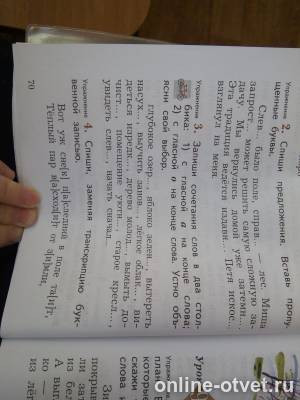 Упражнение 2. Спиши предложения. Вставь пропу-
щенные буквы.
Слев... было поле, справ... — лес. Миша
запрост... может решить самую сложную за-
дачу. Мы вернулись домой уже затемн... .
Эта традиция ведётся издавн... . Петя искос...
взглянул на меня.
Упражнение 3. Запиши сочетания слов в два стол-
бика: 1) с гласной а на конце слова;
2) с гласной о на конце слова. Устно объ-
ясни свой выбор.
глубокое озер..., яблоко зелен..., вытереть
насух..., выучить занов..., лёгкое облак..., ви-
деться изредк..., дерево молод..., вымыть до-
чист..., помещение уютн..., старое кресл...,
увидеть слев..., начать сначал...
Упражнение 4. Спиши, заменяя транскрипцию бук-
венной записью.
Вот уж сне[к] п[а]следний в поле та[и]т,
Тёплый пар в[а]сход[и]т от з[и]мли,
70
Урок
план
которые
скажи
слова и
Зи
покрыв
ли за
из бел
А вып
из лёг
online-otvet.ru